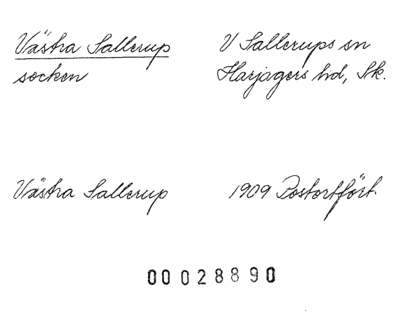 Västra Sallerup V Sallerups sn
socken Harjagers hd, Sk.
Västra Sallerup 1909 Postortfört.
00028890